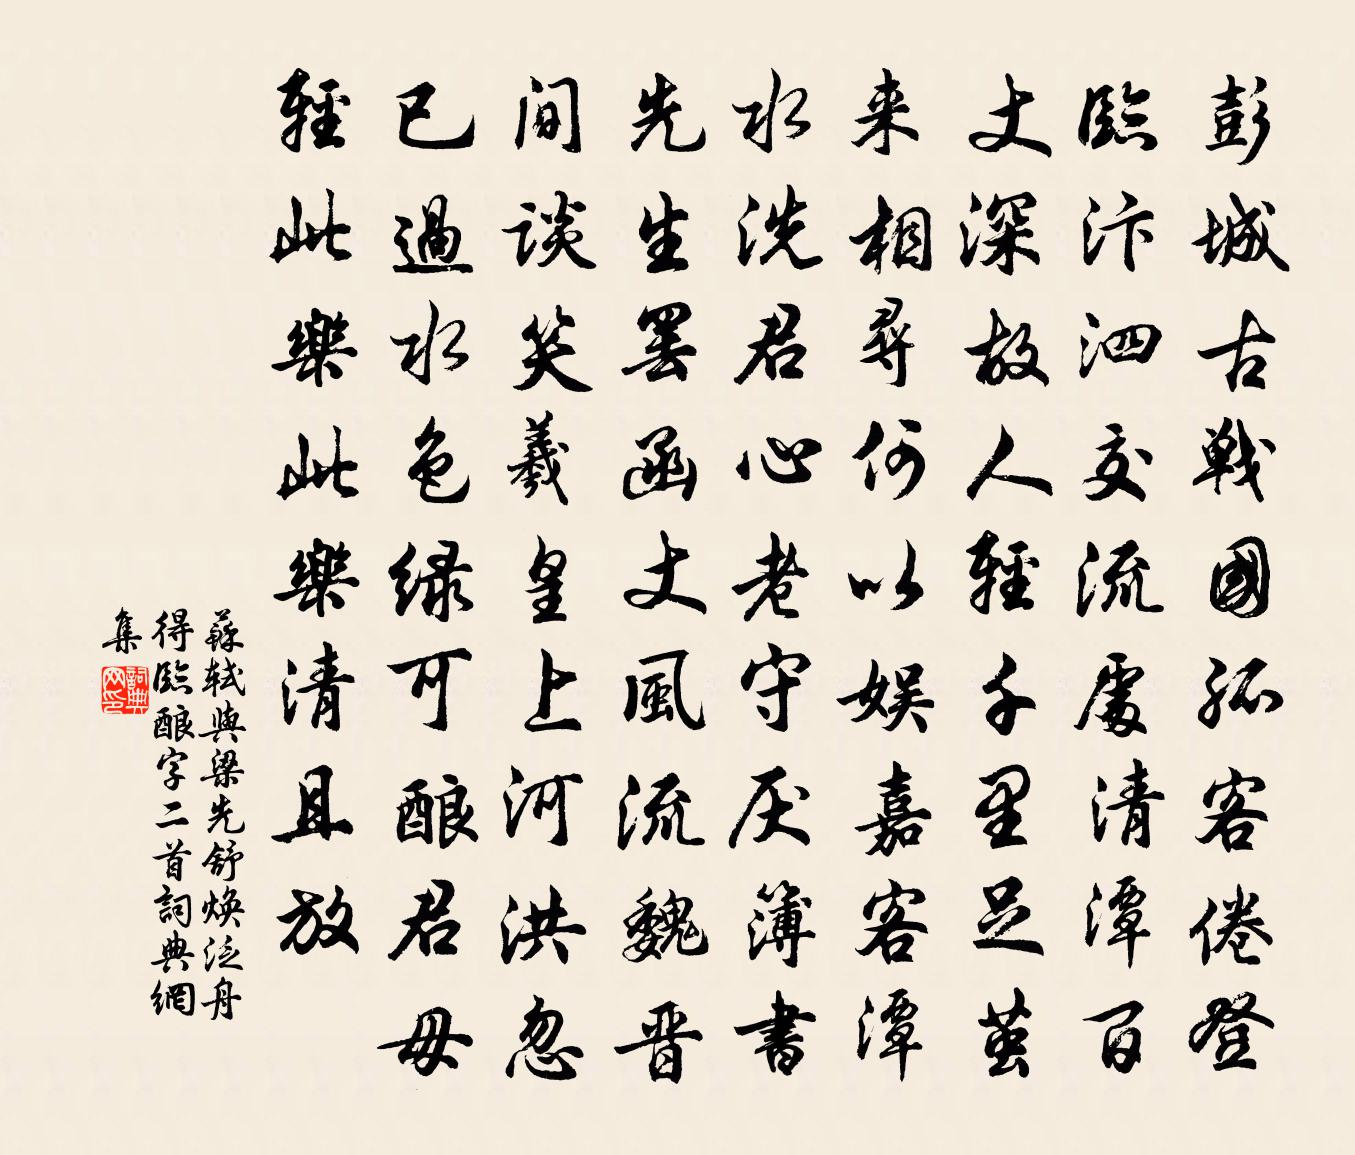 彭城古戰國孤客倦登
臨汴泗交流處清潭百
丈深故人輕千里足茧
来相尋何以娱嘉客潭
水洗君心老守厌簿書
先生罢函丈風流魏晋
间谈笑羲皇上河洪忽
已過水色绿可酿君毋
輕此樂此樂清且放
蘇軾與梁先舒焕泛舟
得臨酿字二首詞典網
集
詞典网印